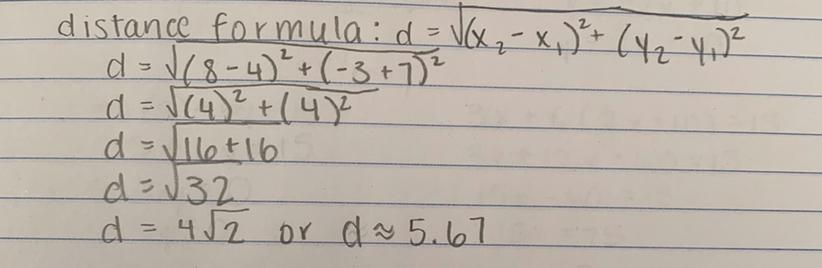 distance formula: d = √(x₂ - x₁)² + (y₂ - y₁)²
d = √(8 - 4)² + (-3 + 7)²
d = √(4)² + (4)²
d = √16 + 16
d = √32
d = 4√2 or d ≈ 5.67